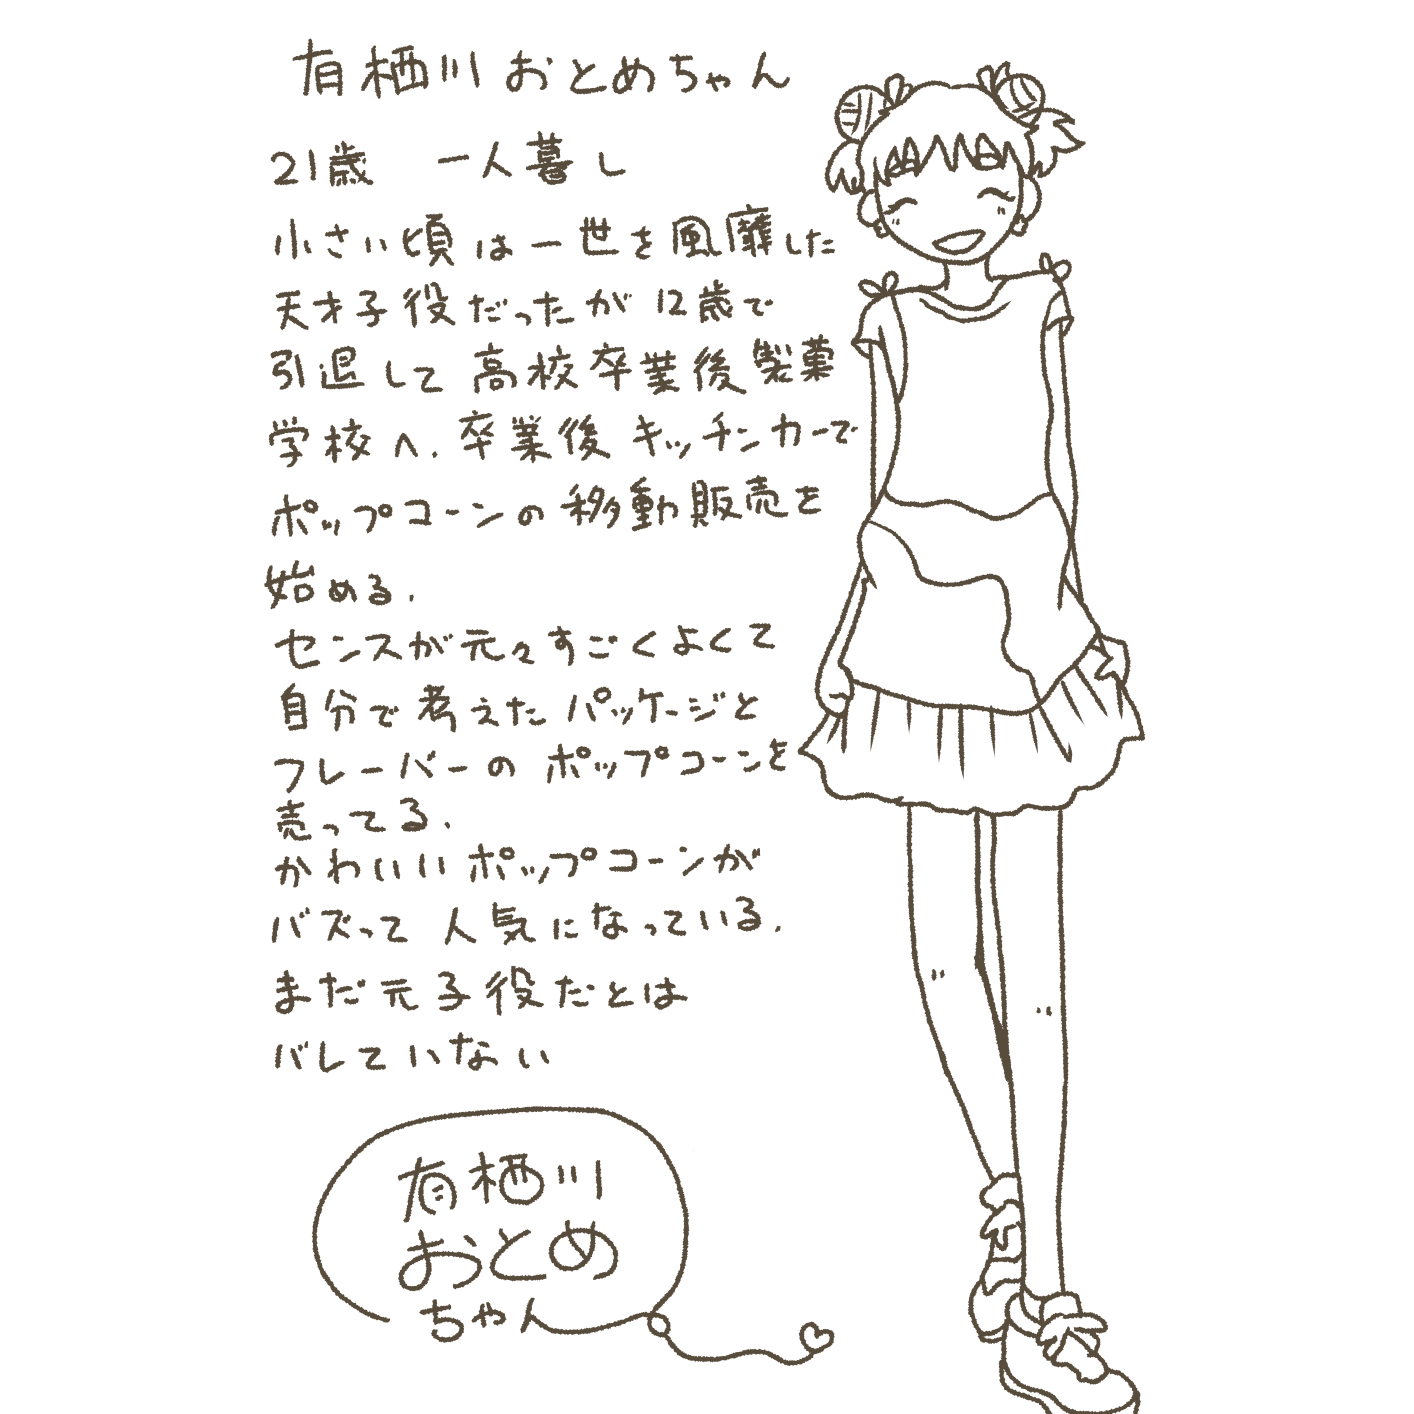 有栖川おとめちゃん
21歳 一人暮し
小さい頃は一世を風靡した
天才子役だったが12歳で
引退して高校卒業後製菓
学校へ.卒業後キッチンカーで
ポップコーンの移動販売を
始める.
センスが元々すごくよくて
自分で考えたパッケージと
フレーバーのポップコーンを
売ってる.
かわいいポップコーンが
バズって人気になっている.
まだ元子役だとは
バレていない
有栖川
おとめ
ちゃん